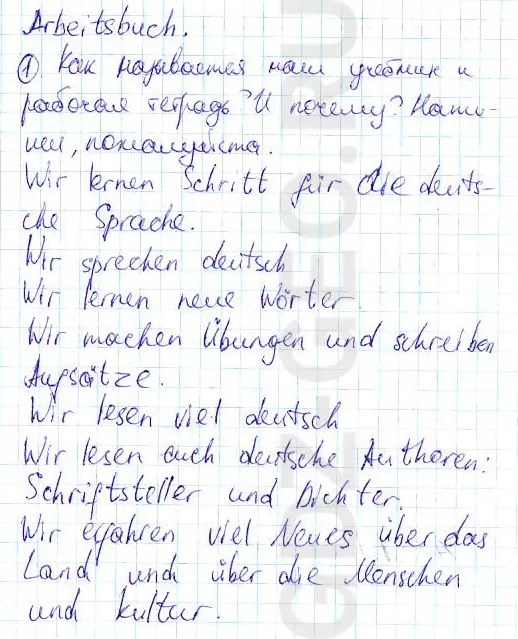 Arbeitsbuch.
① Как называется наш учебник и
рабочая тетрадь? И почему? Напи-
ши, пожалуйста.
Wir lernen Schritt für die deuts-
che Sprache.
Wir sprechen deutsch
Wir lernen neue Wörter.
Wir machen Übungen und schreiben
Aufsätze.
Wir lesen viel deutsch
Wir lesen auch deutsche Authoren:
Schriftsteller und Dichter.
Wir erfahren viel Neues über das
Land und über die Menschen
und kultur.
GDZ-GEO.RU